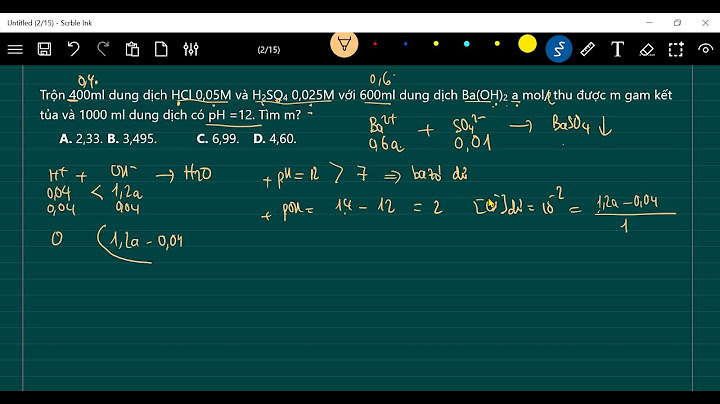 Untitled (2/15) - Scrble Ink
(2/15)
0,4 0,6
Trộn 400ml dung dịch HCl 0,05M và H₂SO₄ 0,025M với 600ml dung dịch Ba(OH)₂ a mol/l thu được m gam kết
tủa và 1000 ml dung dịch có pH =12. Tìm m?
A. 2,33. B. 3,495. C. 6,99. D. 4,60.
Ba²⁺ + SO₄²⁻ → BaSO₄ ↓
0,6a 0,01
H⁺ + OH⁻ → H₂O
0,04 < 1,2a
0,04 0,04
0 (1,2a - 0,04
+ pH = 12 > 7 ⇒ bazơ dư
+ pOH = 14 - 12 = 2 dư = 10⁻² = 1,2a - 0,04
1